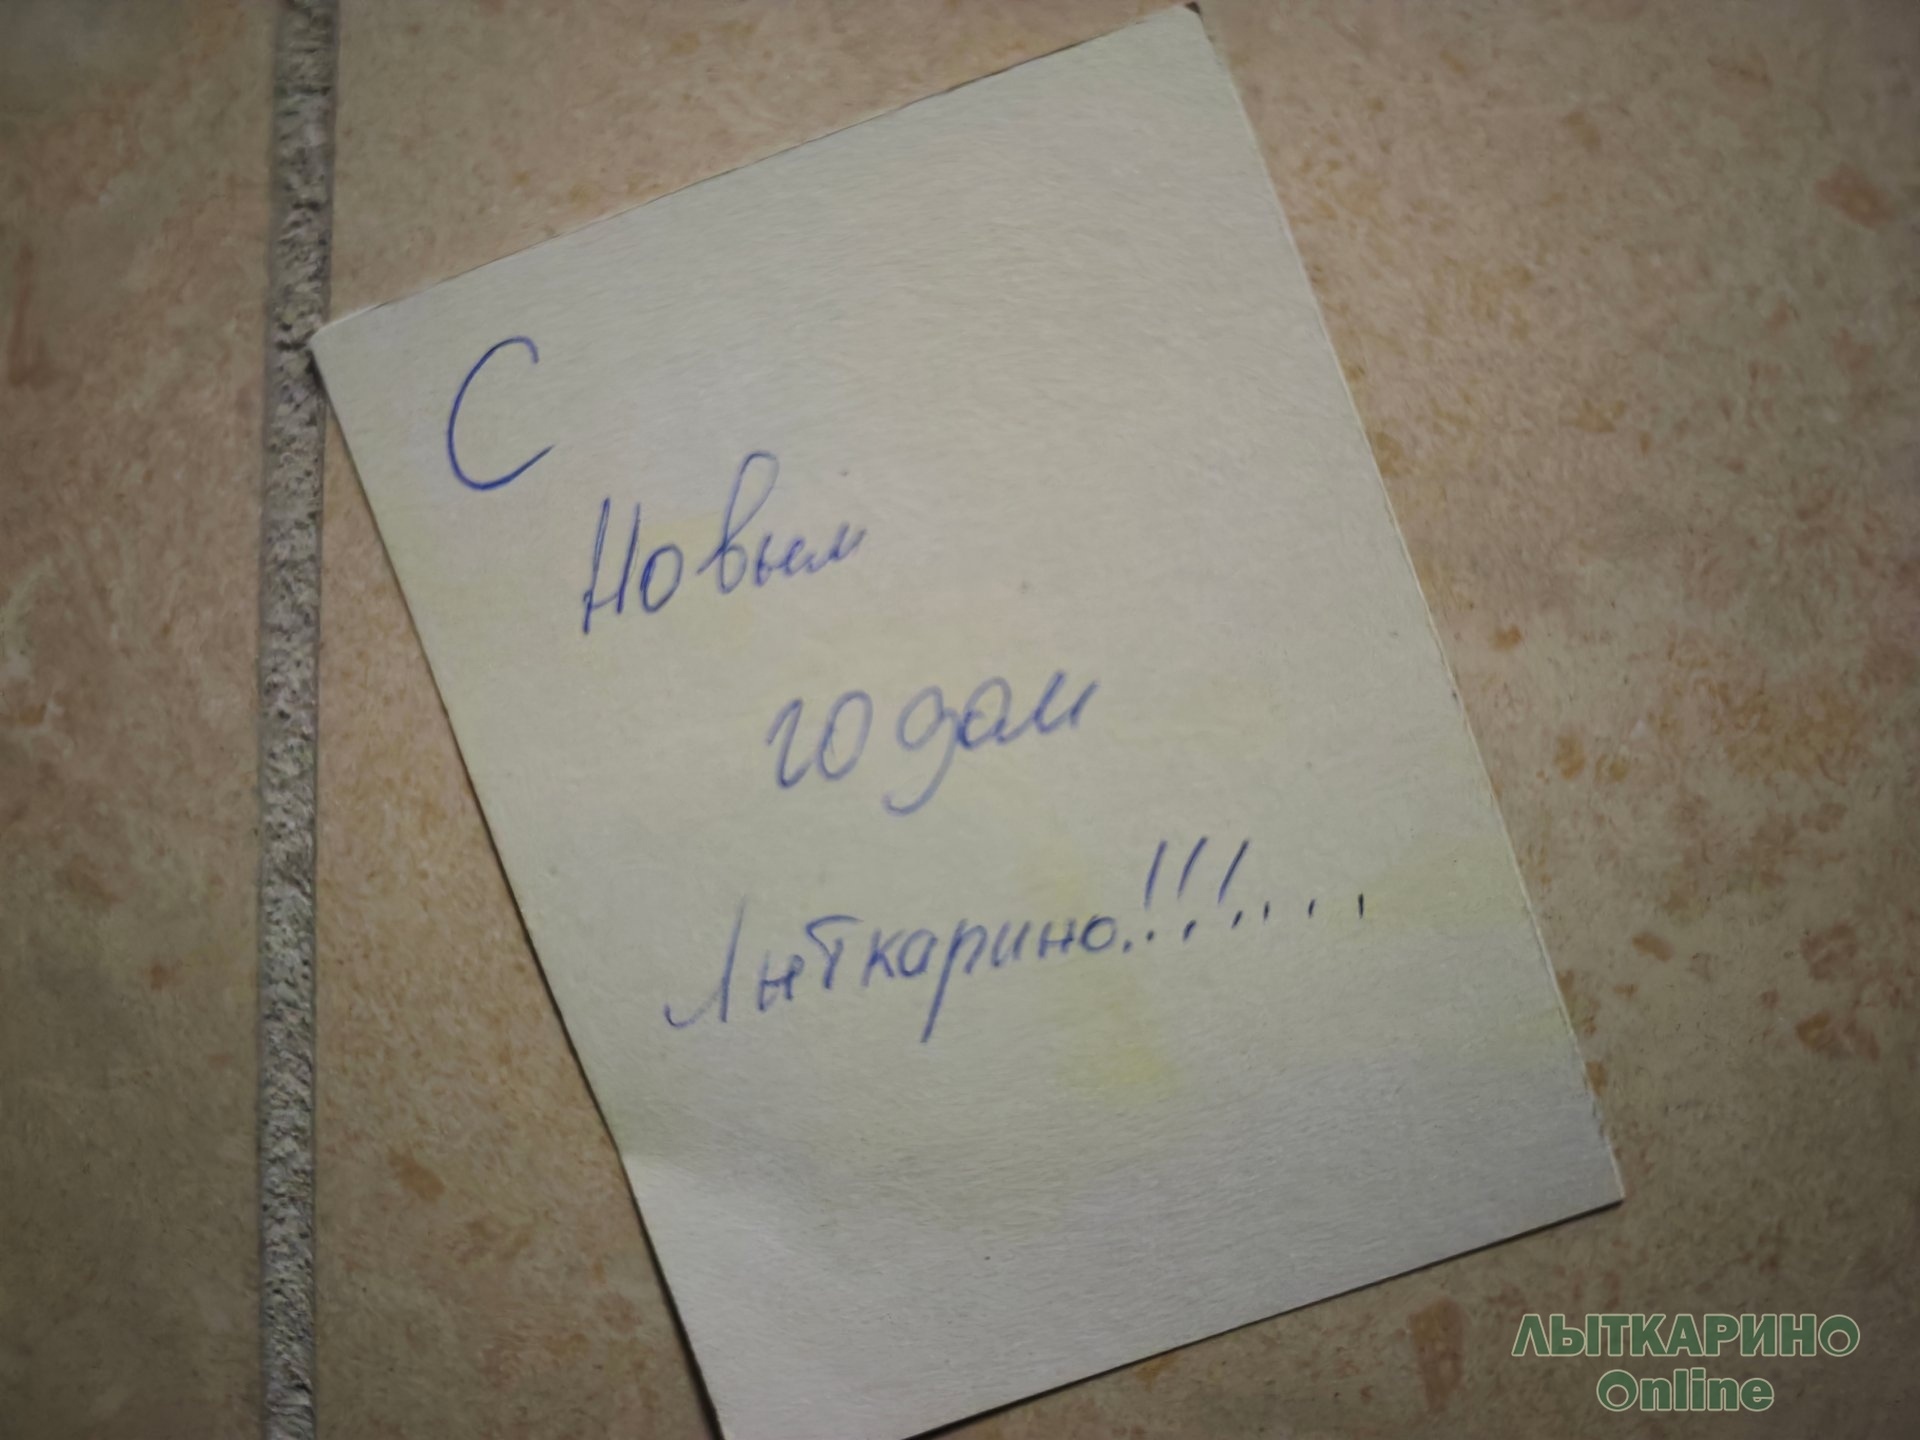 С
Новым
годом
Лыткарино!!!....
ЛЫТКАРИНО
Online